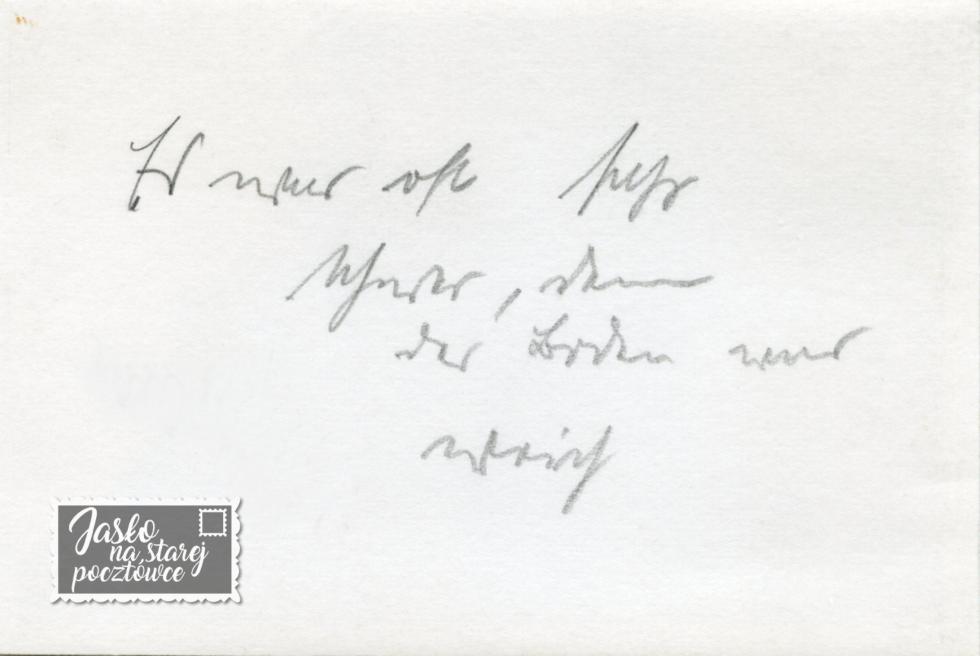 Er war oft sehr
schwer, denn
der Boden war
weich
Jasło
na starej
pocztówce